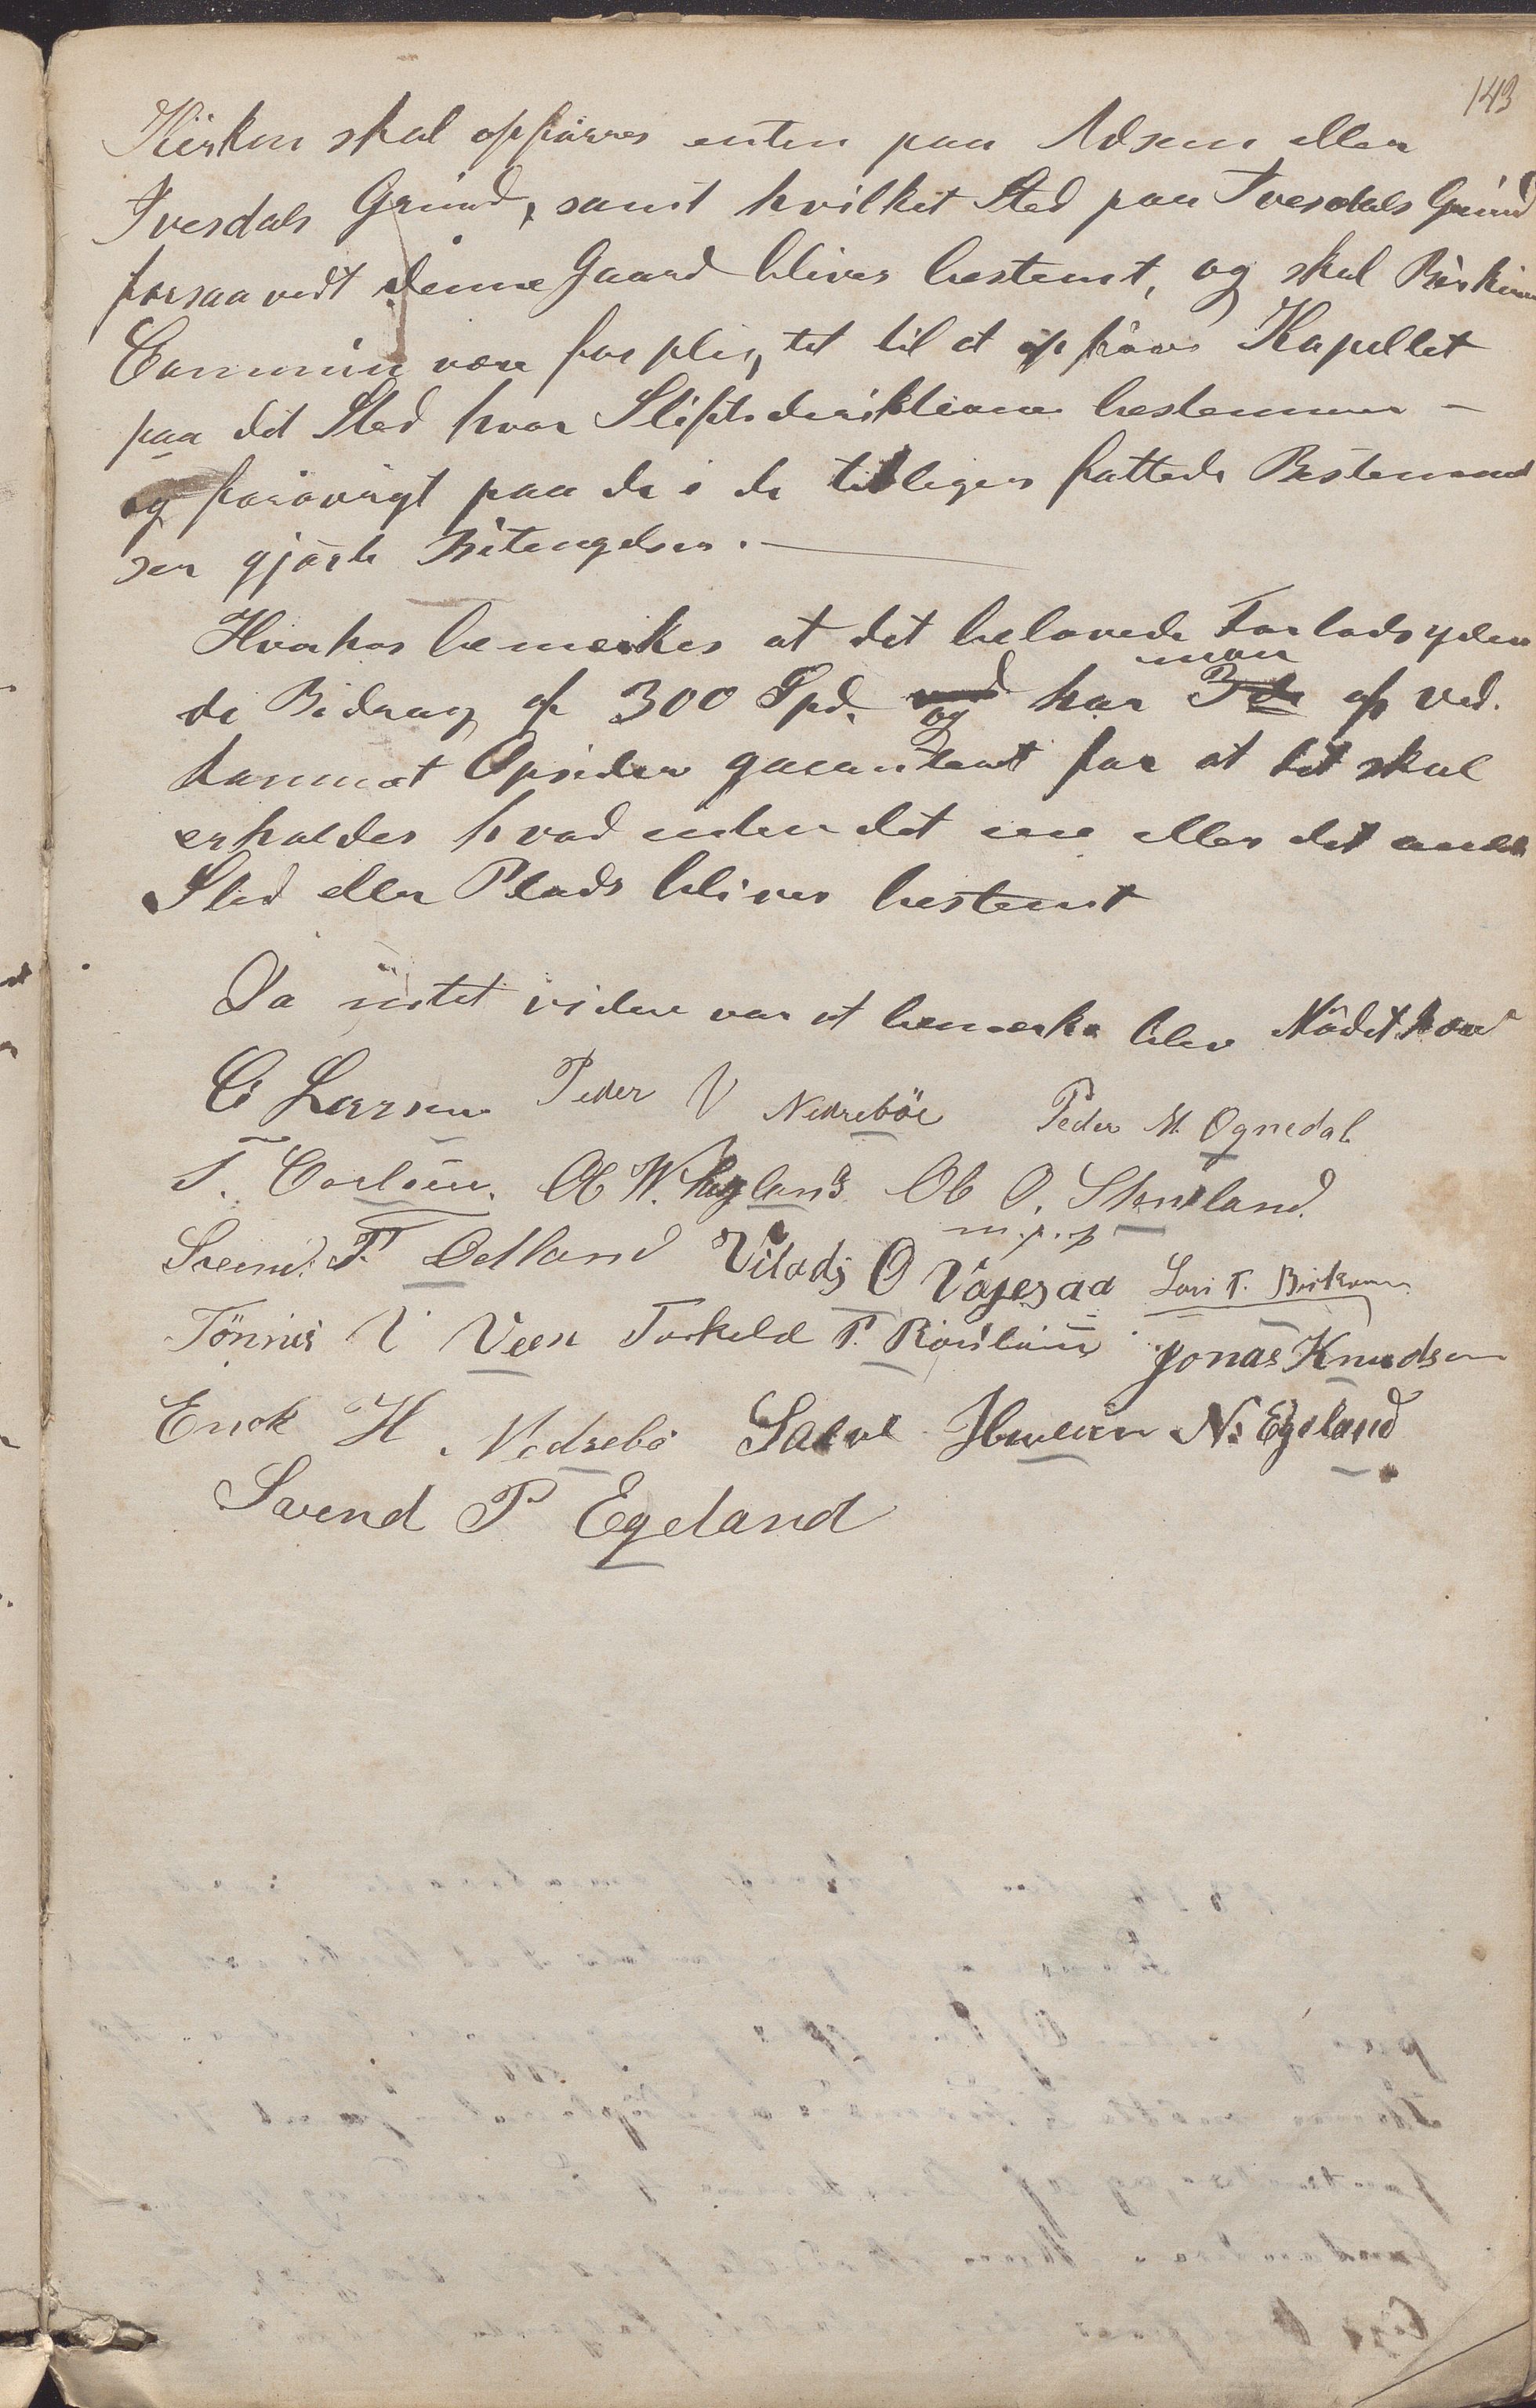 143
Kirken skal opføres enten paa Adsen eller
Ivesdals Grund, samt hvilket Sted paa Ivesdals Grund
forsaavidt denne Gaard bliver bestemt, og skal Birkrem
Commun være forpligtet til at opføre Kapellet
paa det Sted hvor Stiftsdirektionen bestemmer –
og forøvrigt paa de i de tidligere fattede Bestemmel
ser gjorte Betingelser. –
Hvorhos bemærkes at det belovede Forlodsyden
man
de Bidrag af 300 Spd. og har af ved
kommet Opsidere garanteret for at det skal
erholdes hvad enten det ene eller det andet
Sted eller Plads bliver bestemt
Da intet videre var at bemærke blev Mødet hævet
C Larsen Peder V Nedreböe Peder M. Ognedal
T. Carlsen. Ol W. Hægland Ol O. Skneland.
m.p.p
Svend T. Oetland Vilads O Vaset Lars T. Birkrem
Tönnes V Veen Torkeld T. Jonas Knudsen
Enok H. Nedrebö Salve N. Egeland
Svend P Egeland